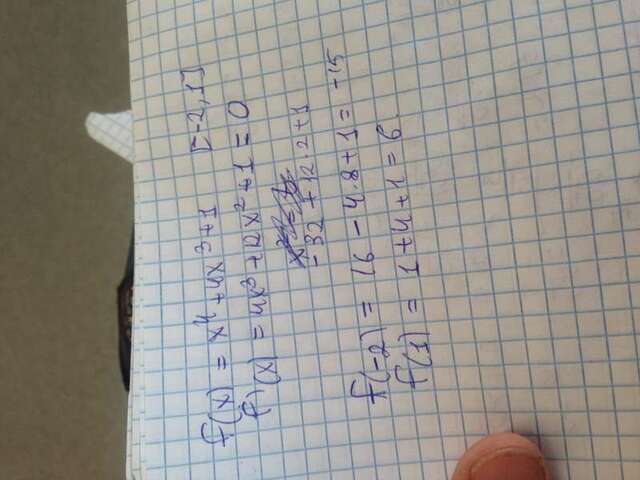 f(x) = x⁴ + 4x³ + 1 [-2, 1]
f'(x) = 4x³ + 12x² + 1 = 0
- 32 + 12·2 + 1
f(-2) = 16 - 4·8 + 1 = -15
f(1) = 1 + 4 + 1 = 6